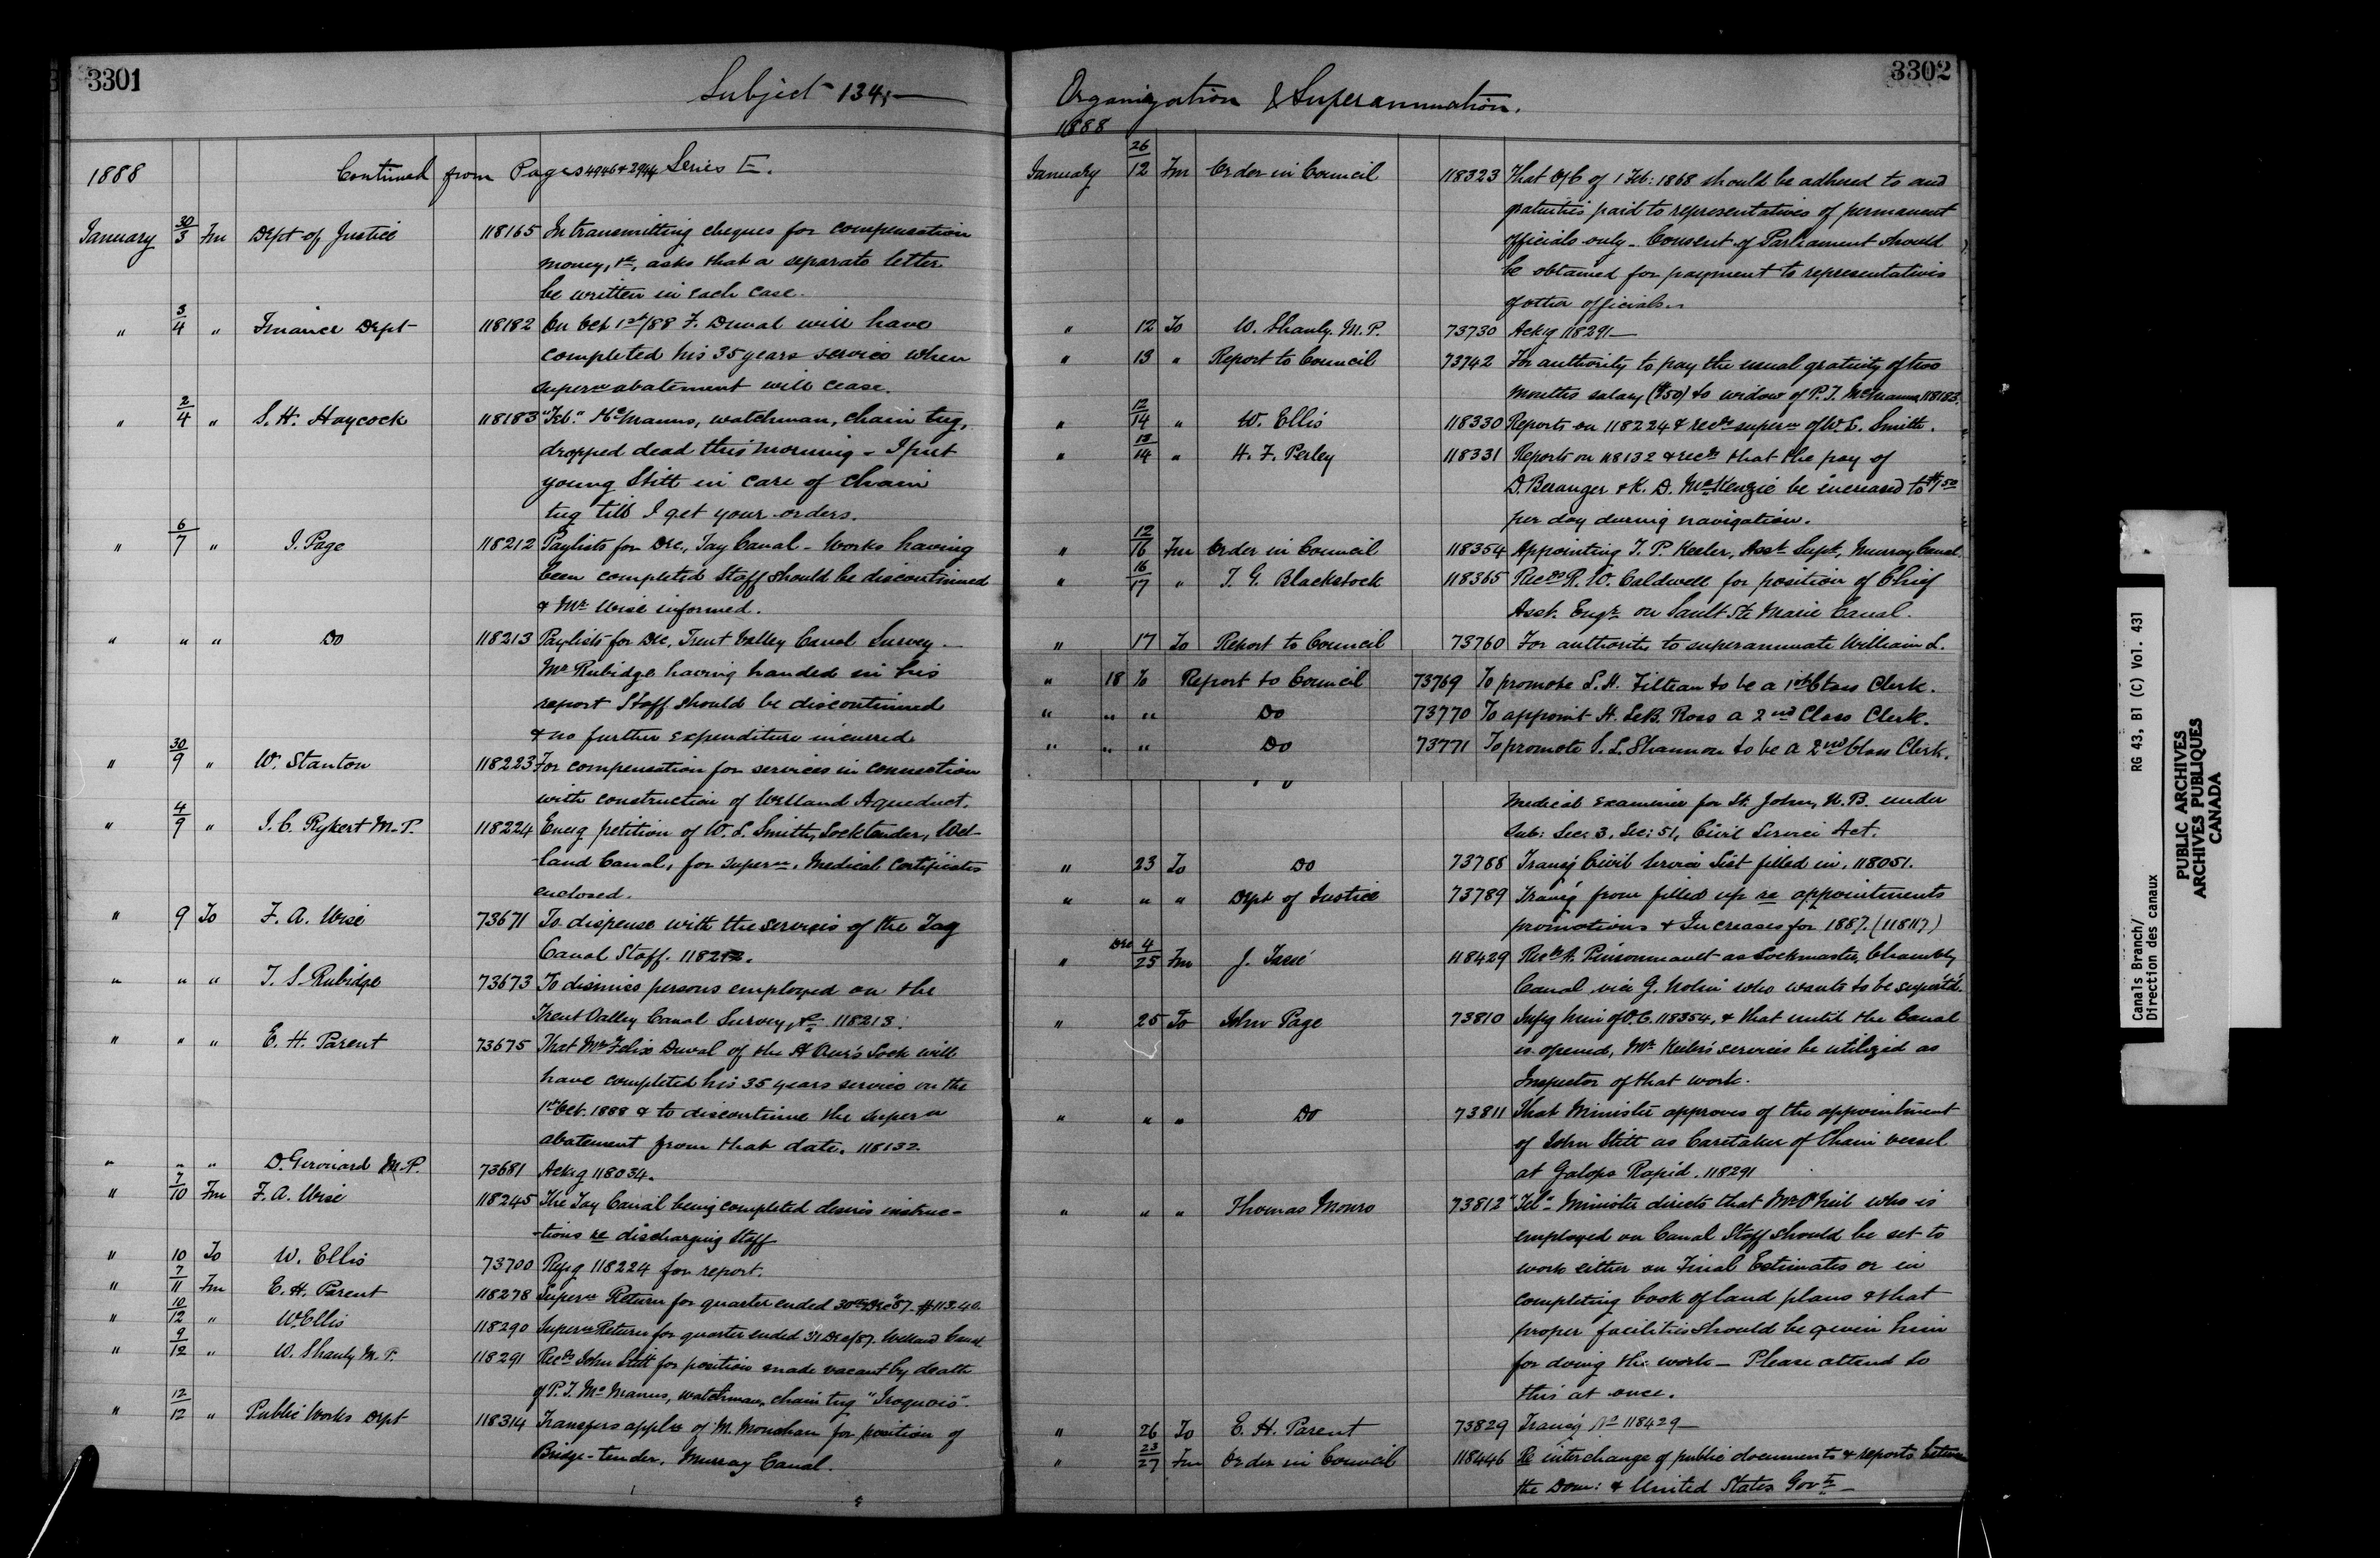 3301
Subject 134,—
1888 Continued from Pages 4946 & 2944 Series E.
January 30/3 Fm Dept of Justice 118165 In transmitting cheques for compensation
money, &c, asks that a separate letter
be written in each case.
" 3/4 " Finance Dept 118182 On Oct 1st/88 F. Duval will have
completed his 35 years service when
super'n abatement will cease.
" 2/4 " S. H. Haycock 118183 McManus, watchman, chain tug,
dropped dead this morning - I put
young Stitt in care of chain
tug till I get your orders.
" 6/7 " J. Page 118212 Paylists for Dec., Tay Canal - Works having
been completed Staff should be discontinued
& Mr Wise informed.
" " " Do 118213 Paylists for Dec, Trent Valley Canal Survey -
Mr Rubidge having handed in his
report Staff should be discontinued
& no further expenditure incurred
" 30/9 " W. Stanton 118223 For compensation for services in connection
with construction of Welland Aqueduct.
" 4/9 " J. C. Rykert M.P. 118224 Encg petition of W. L. Smith, Locktender, Wel-
-land Canal, for super'n, Medical Certificates
enclosed.
" 9 To F. A. Wise 73671 To dispense with the services of the Tay
Canal Staff. 118212.
" " " T. S. Rubidge 73673 To dismiss persons employed on the
Trent Valley Canal Survey, &c 118213.
" " " E. H. Parent 73675 That Mr Felix Duval of the St Ours Lock will
have completed his 35 years service on the
1st Oct. 1888 & to discontinue the super'n
abatement from that date. 118132.
" " " D. Girouard M.P. 73681 Ackg 118034.
" 7/10 Fm F. A. Wise 118245 The Tay Canal being completed desires instruc-
-tions re discharging Staff
" 10 To W. Ellis 73700 Refg 118224 for report.
" 7/11 Fm E. H. Parent 118278 Super'n Return for quarter ended 30th Dec '87. $113.40.
" 10/12 " W. Ellis 118290 Super'n Return for quarter ended 31 Dec/87. Welland Canal.
" 9/12 " W. Shanly M.P. 118291 Recds John Stitt for position made vacant by death
of P. J. McManus, watchman, chain tug "Iroquois".
" 12/12 " Public Works Dept 118314 Transfers appl'n of M. Monahan for position of
Bridge-tender, Murray Canal.
3302
Organization & Superannuation.
1888
January 26/12 Fm Order in Council 118323 That O/C of 1 Feb: 1868 should be adhered to and
gratuities paid to representatives of permanent
officials only - Consent of Parliament should
be obtained for payment to representatives
of other officials.
" 12 To W. Shanly, M.P. 73730 Ackg 118291 —
" 13 " Report to Council 73742 For authority to pay the usual gratuity of two
months salary ($50) to widow of P. J. McManus 118183.
" 12/14 " W. Ellis 118330 Reports on 118224 & recds super'n of W. L. Smith.
" 13/14 " H. F. Perley 118331 Reports on 118132 & recds that the pay of
D. Beranger & K. D. McKenzie be increased to $1.50
per day during navigation.
" 12/16 Fm Order in Council 118354 Appointing T. P. Keeler, Asst Supt, Murray Canal.
" 16/17 " T. G. Blackstock 118365 Recds R. W. Caldwell for position of Chief
Asst. Engr. on Sault Ste Marie Canal.
" 17 To Report to Council 73760 For authority to superannuate William L.
" 18 To Report to Council 73769 To promote L. H. Filteau to be a 1st Class Clerk.
" " " Do 73770 To appoint H. LeB. Ross a 2nd Class Clerk.
" " " Do 73771 To promote S. L. Shannon to be a 2nd Class Clerk.
Medical Examiner for St. John, N.B. under
Sub: Sec: 3, Sec: 51, Civil Service Act.
" 23 To Do 73788 Transg Civil Service List filled in, 118051.
" " " Dept of Justice 73789 Transg form filled up re appointments
promotions & Increases for 1887. (118117)
" Dec 4/25 Fm J. Tassé 118429 Recds Pinsonneault as Lockmaster, Chambly
Canal vice G. Nolin who wants to be super'td.
" 25 To John Page 73810 Infg him of O.C. 118354, & that until the Canal
is opened, Mr Keeler's services be utilized as
Inspector of that work.
" " " Do 73811 That Minister approves of the appointment
of John Stitt as Caretaker of Chain vessel
at Galops Rapid. 118291
" " " Thomas Monro 73812 "Tel" Minister directs that Mr O'Neil who is
employed on Canal Staff should be set to
work either on Final Estimates or in
completing book of land plans & that
proper facilities should be given him
for doing the work — Please attend to
this at once.
" 26 To E. H. Parent 73829 Transg No 118429 —
" 23/27 Fm Order in Council 118446 Re interchange of public documents & reports between
the Dom: & United States Govt —
Canals Branch/ RG 43, B1 (C) Vol. 431
Direction des canaux
PUBLIC ARCHIVES
ARCHIVES PUBLIQUES
CANADA